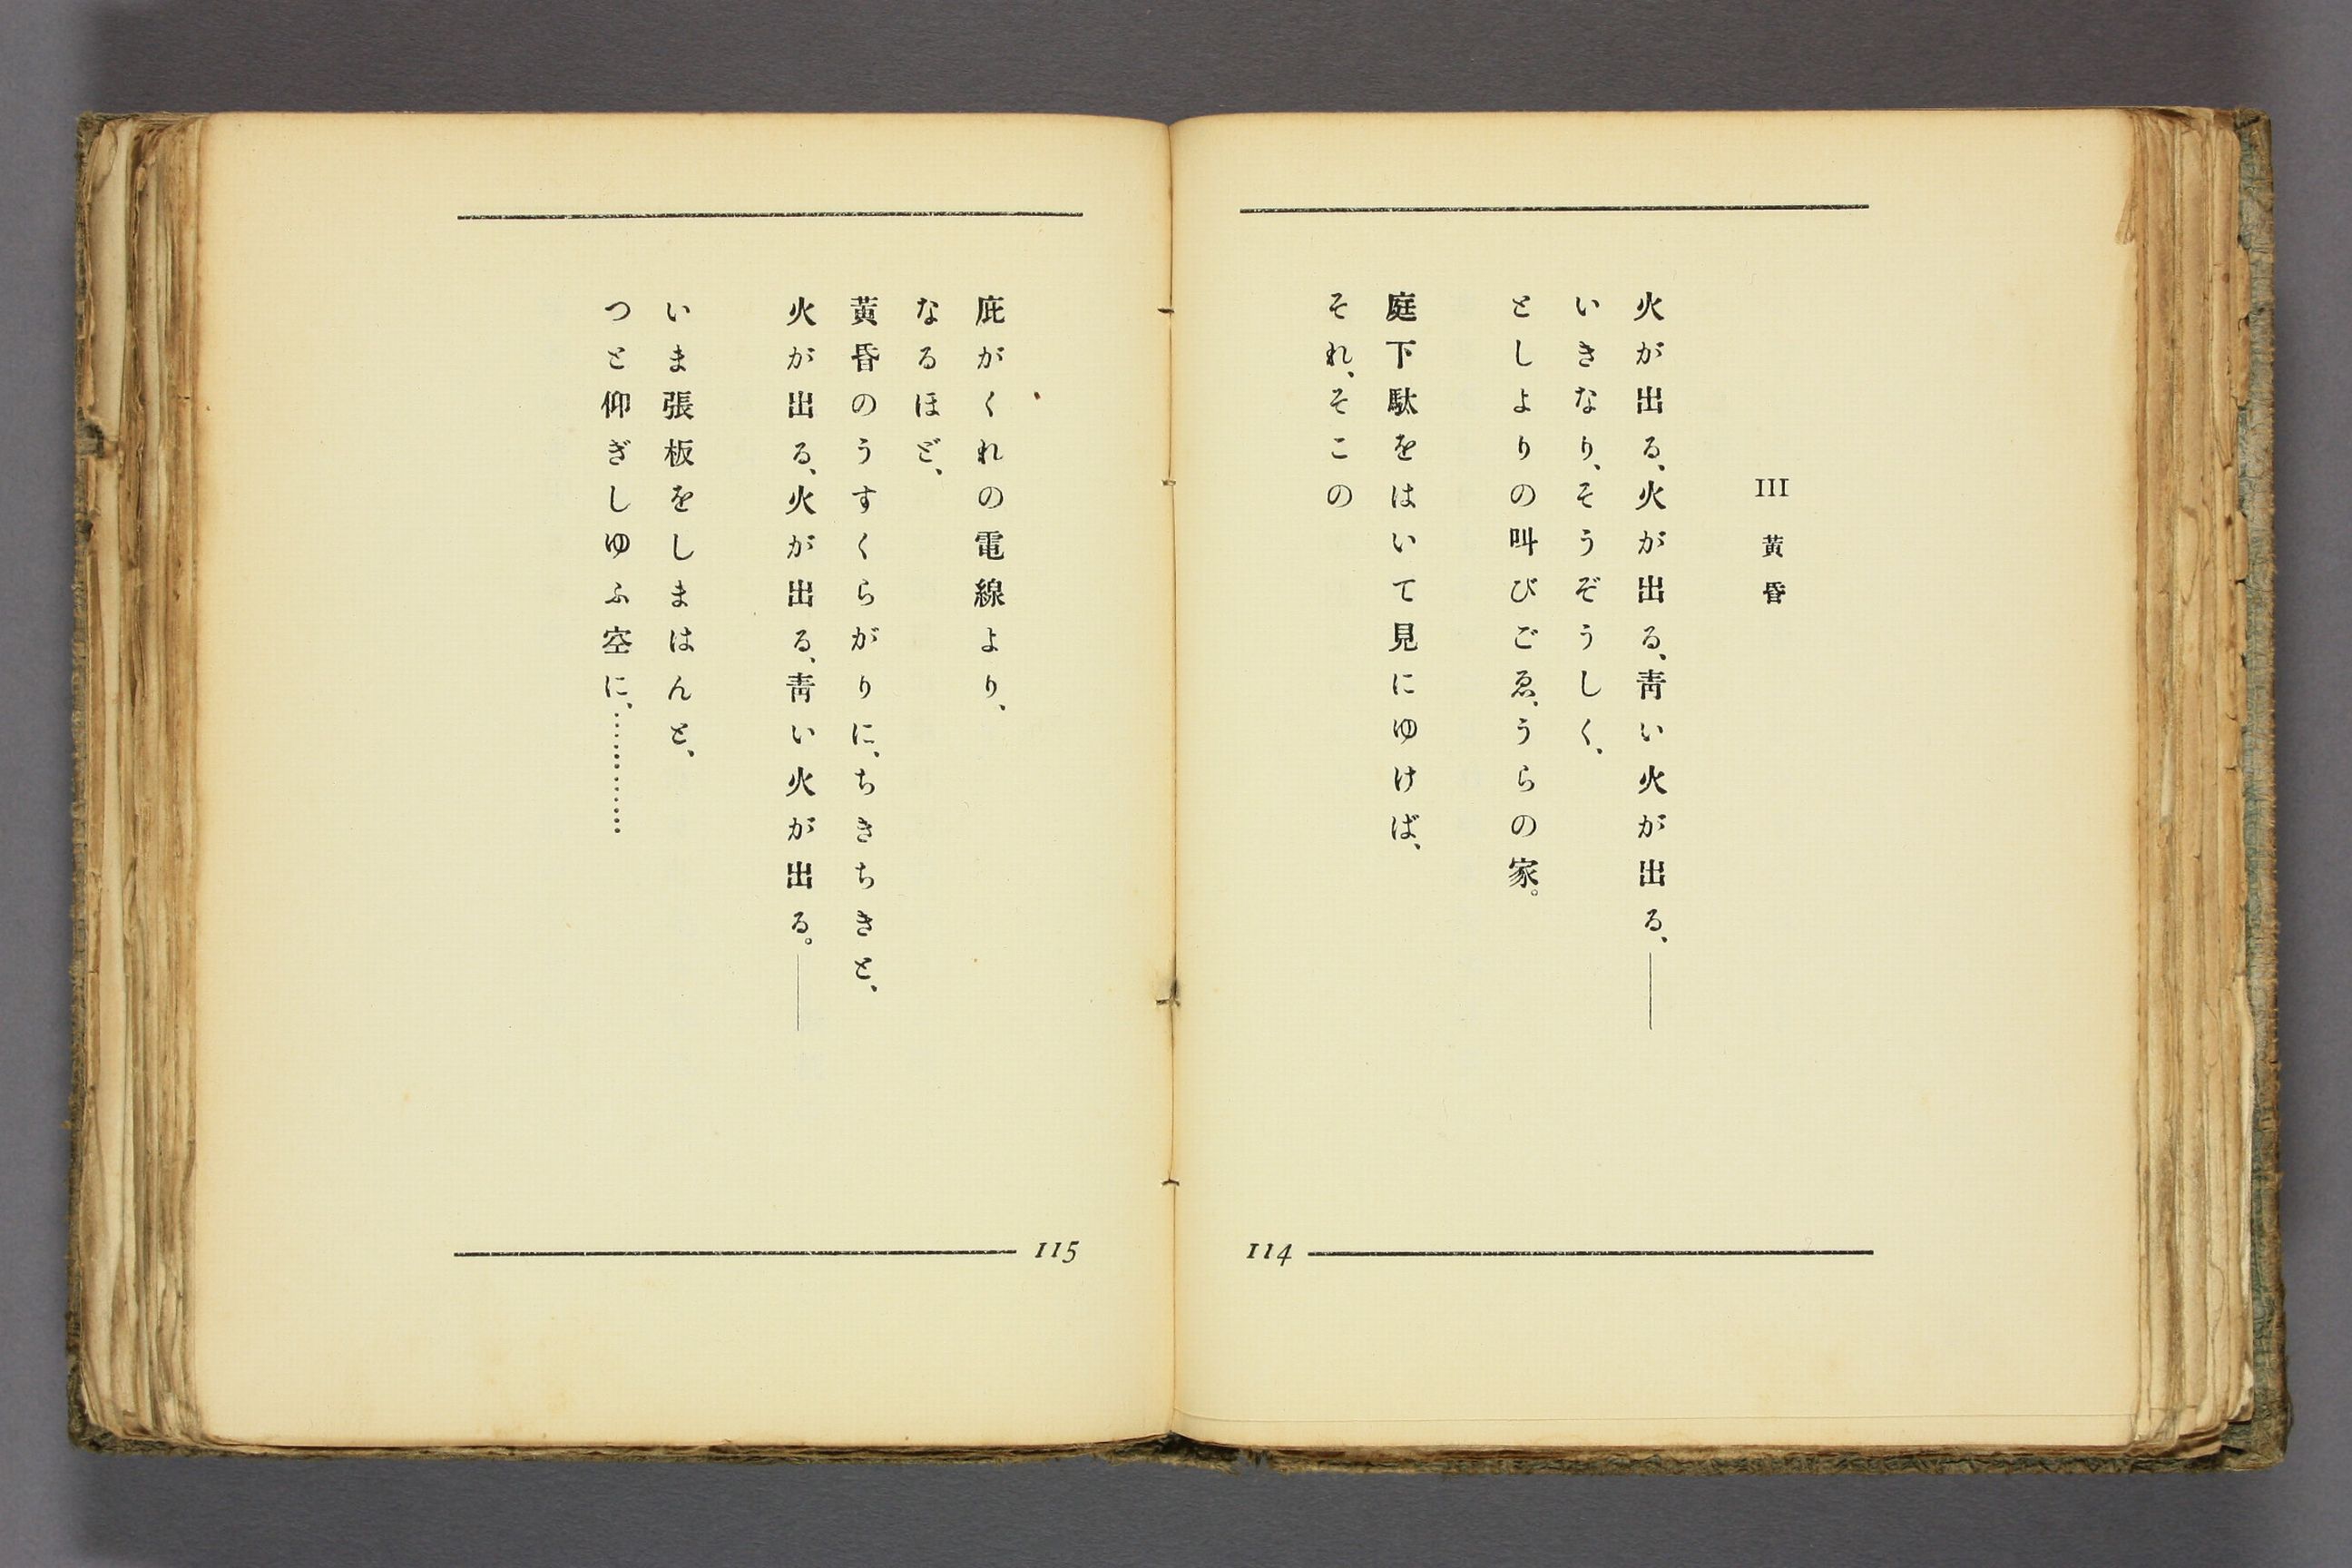 III 黄昏
火が出る、火が出る、靑い火が出る、――
いきなり、そうぞうしく、
としよりの叫びごゑ、うらの家。
庭下駄をはいて見にゆけば、
それ、そこの
114
庇がくれの電線より、
なるほど、
黄昏のうすくらがりに、ちきちきと、
火が出る、火が出る、靑い火が出る。――
いま張板をしまはんと、
つと仰ぎしゆふ空に、…………
115